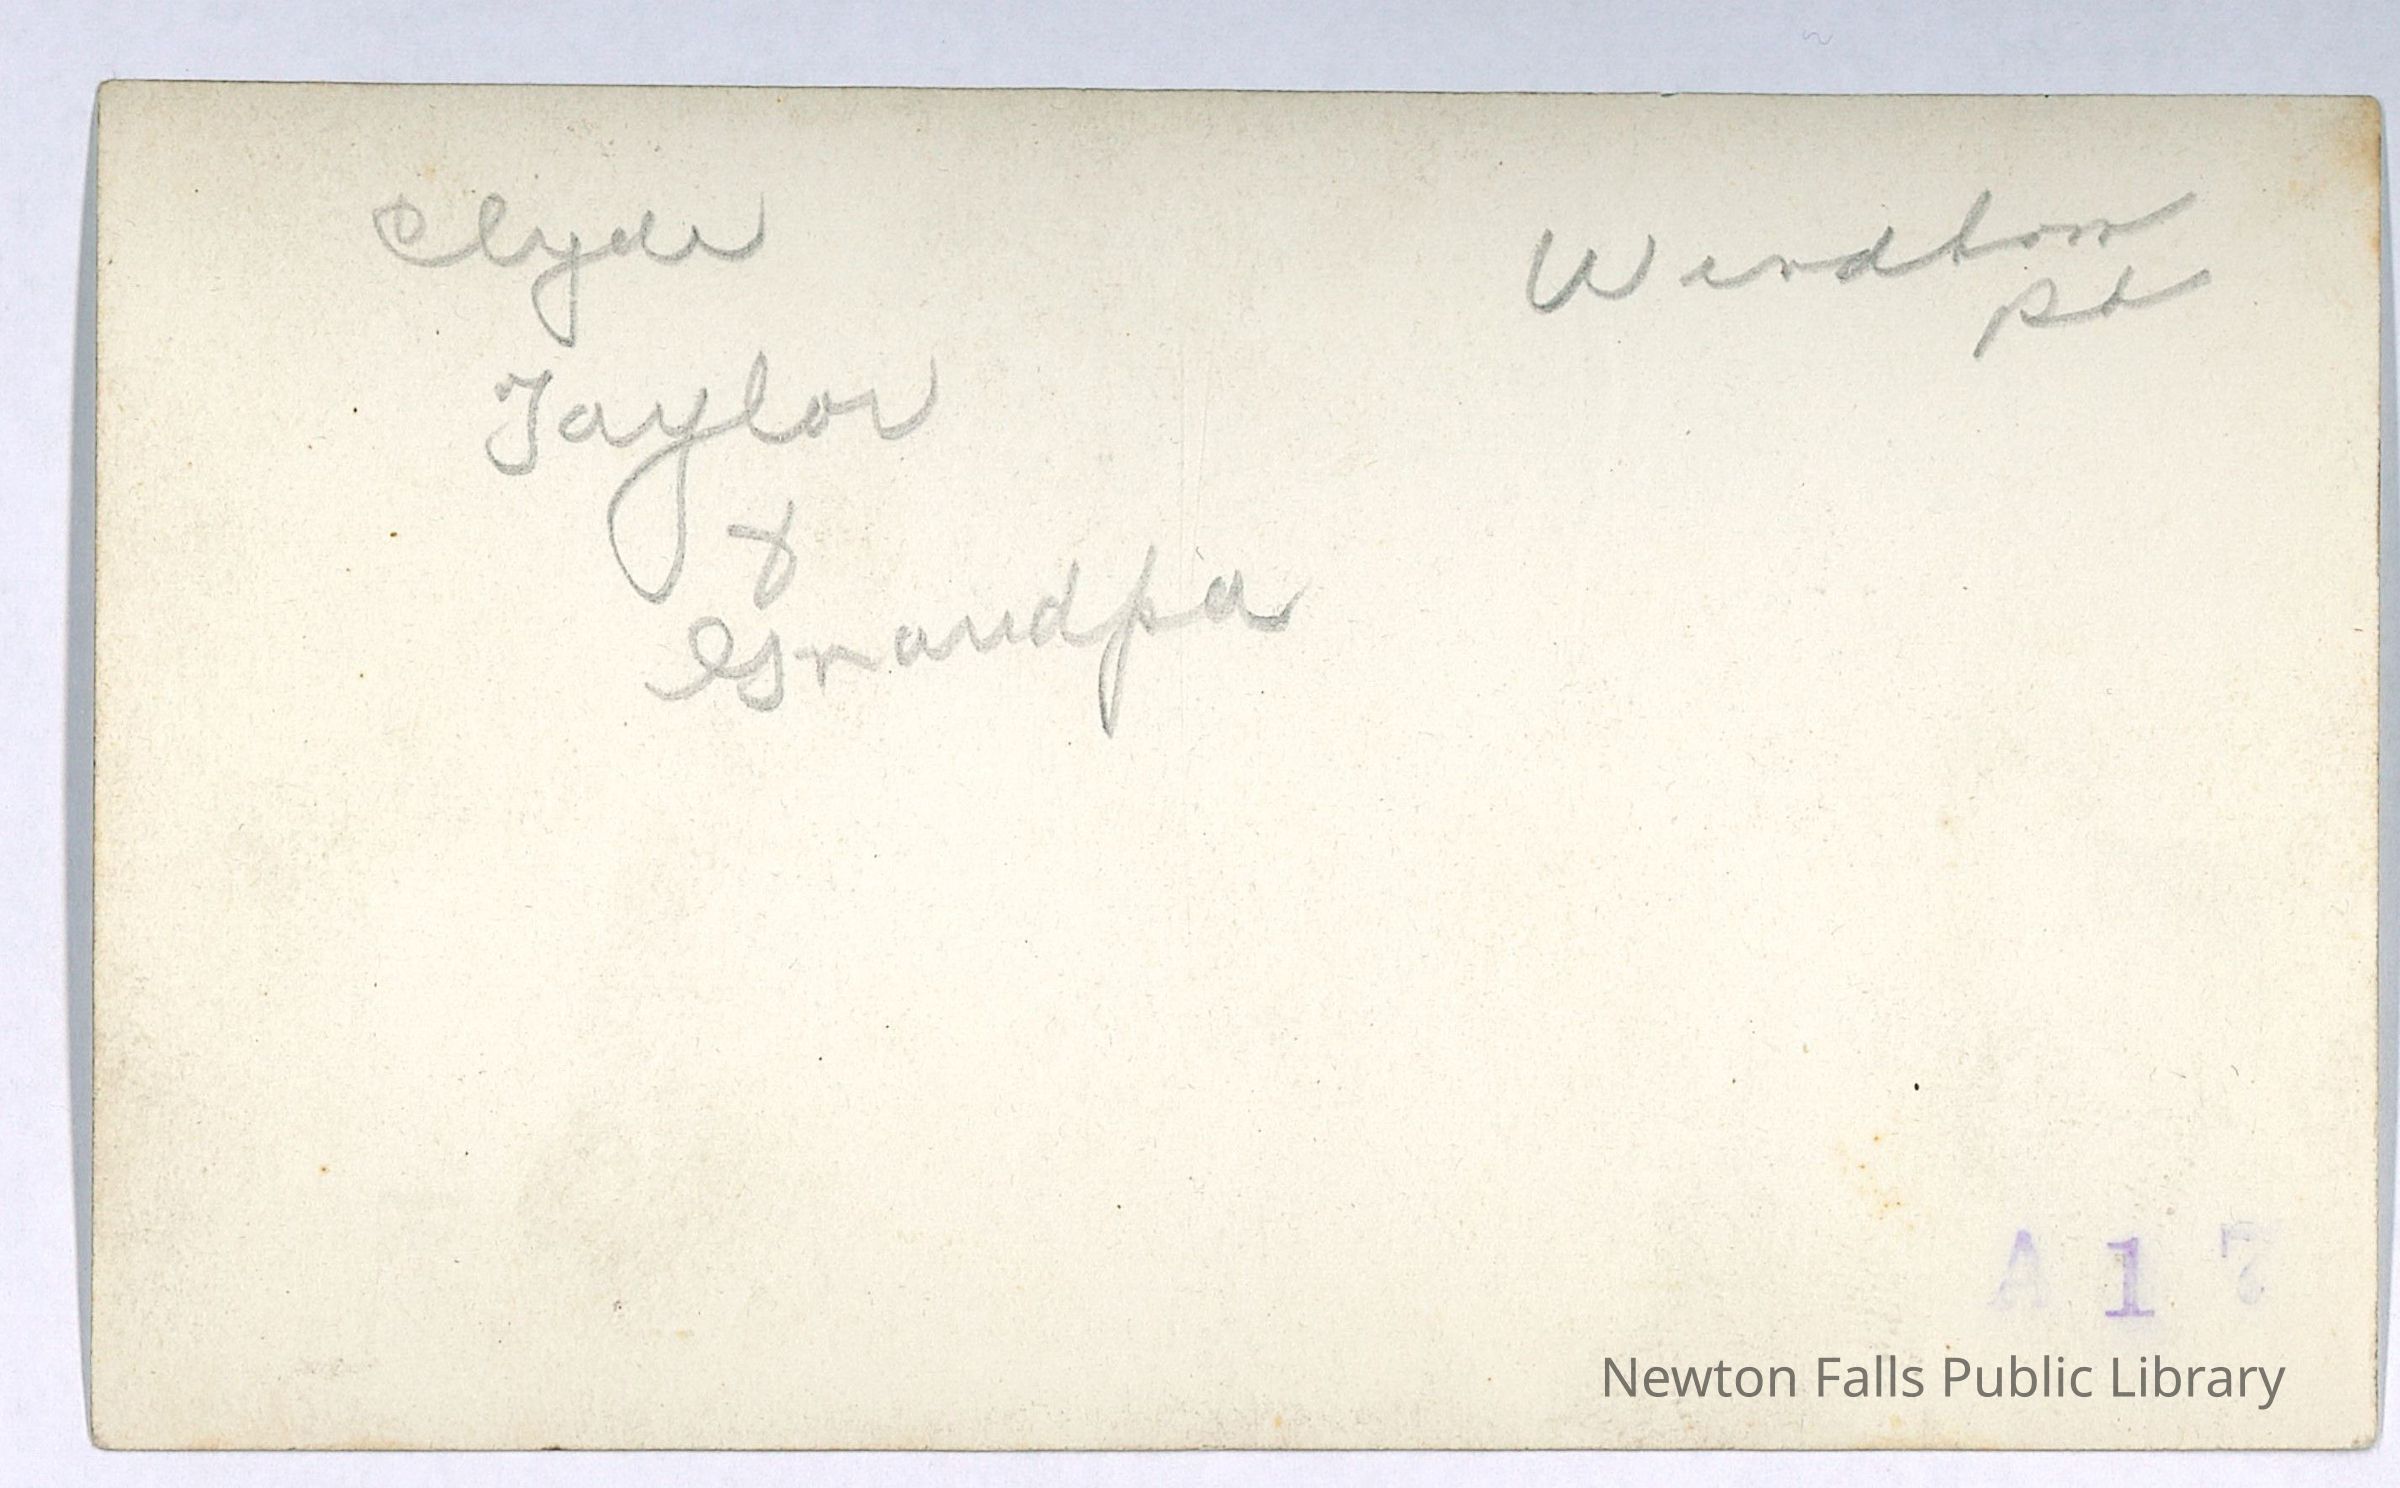 Clyde
Taylor
&
Grandpa
Windham
Rd
A 1 7
Newton Falls Public Library